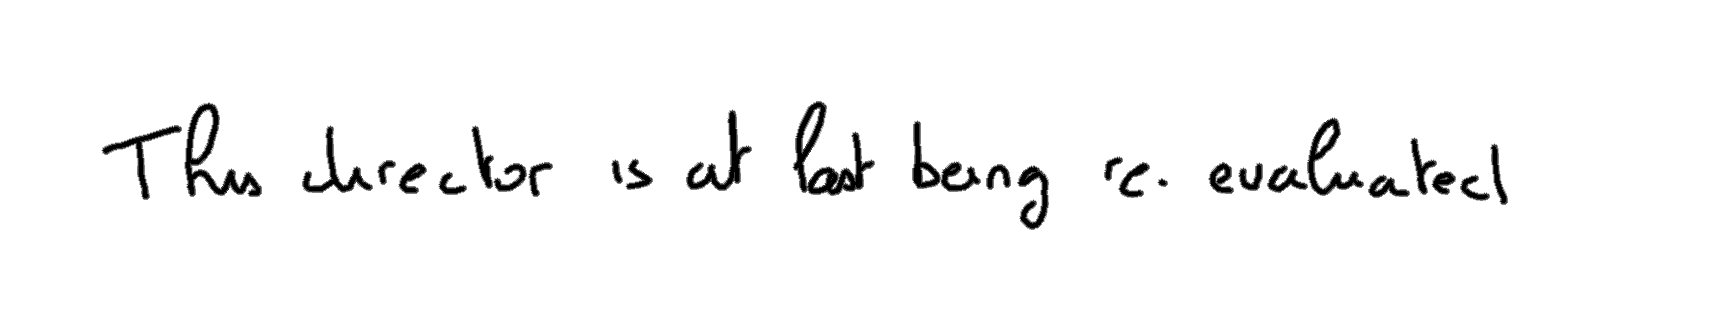 This director is at last being re. evaluated